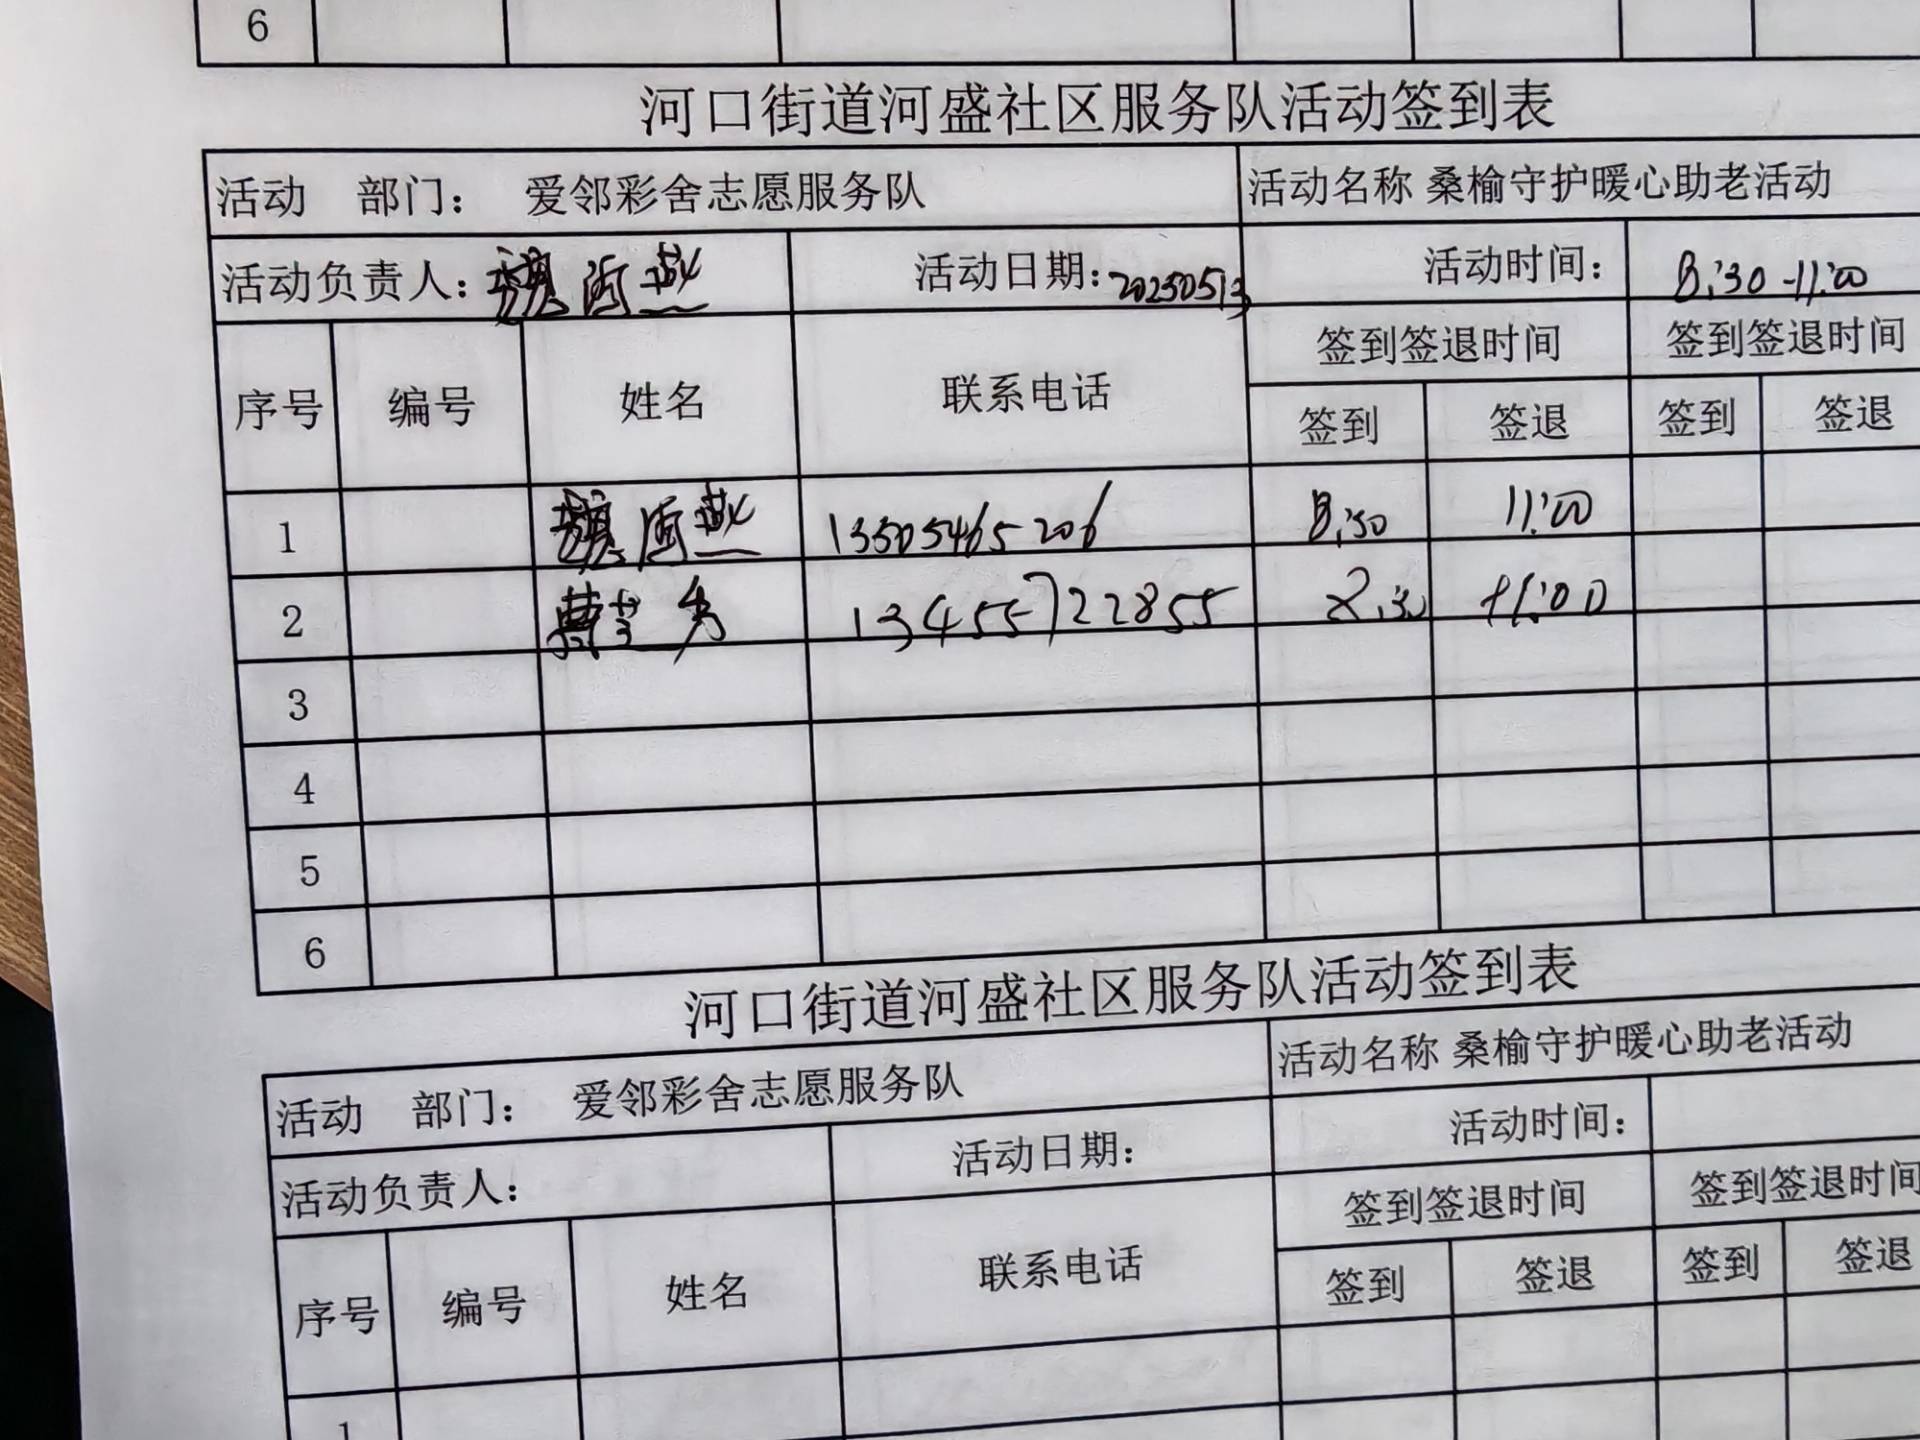 6
河口街道河盛社区服务队活动签到表
活动 部门： 爱邻彩舍志愿服务队 活动名称 桑榆守护暖心助老活动
活动负责人：魏河燕 活动日期：20250513 活动时间： 8:30-11:00
序号 编号 姓名 联系电话 签到签退时间 签到签退时间
签到 签退 签到 签退
1 魏河燕 13505465206 8:30 11:00
2 曹兰秀 13455722855 8:30 11:00
3
4
5
6
河口街道河盛社区服务队活动签到表
活动 部门： 爱邻彩舍志愿服务队 活动名称 桑榆守护暖心助老活动
活动负责人： 活动日期： 活动时间：
序号 编号 姓名 联系电话 签到签退时间 签到签退时间
签到 签退 签到 签退
1